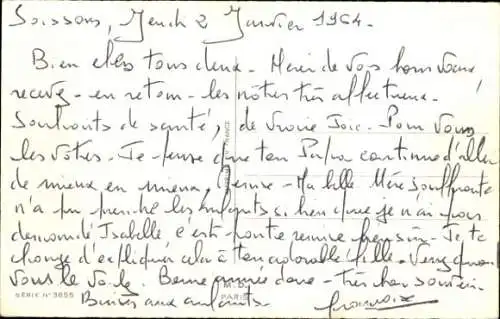 Soissons, Jeudi 2 Janvier 1964.
Bien chers tous deux. Merci de vos bons voeux,
recevez - en retour - les nôtres très affectueux.
Souhaits de santé, de vraie Joie. Pour vous
les vôtres. Je pense que ton Papa continue d'aller
de mieux en mieux, Ma belle Mère souffrante
n'a pu prendre les enfants si bien que je n'ai pas
demandé Isabelle c'est partie remise Je te
charge d'expliquer cela à ton adorable fille. Venez quand
vous le voulez. Bonne année donc - très bon souvenir.
Bises aux enfants. Françoise
SÉRIE N° 3655
M.D.
PARIS
FRANCE